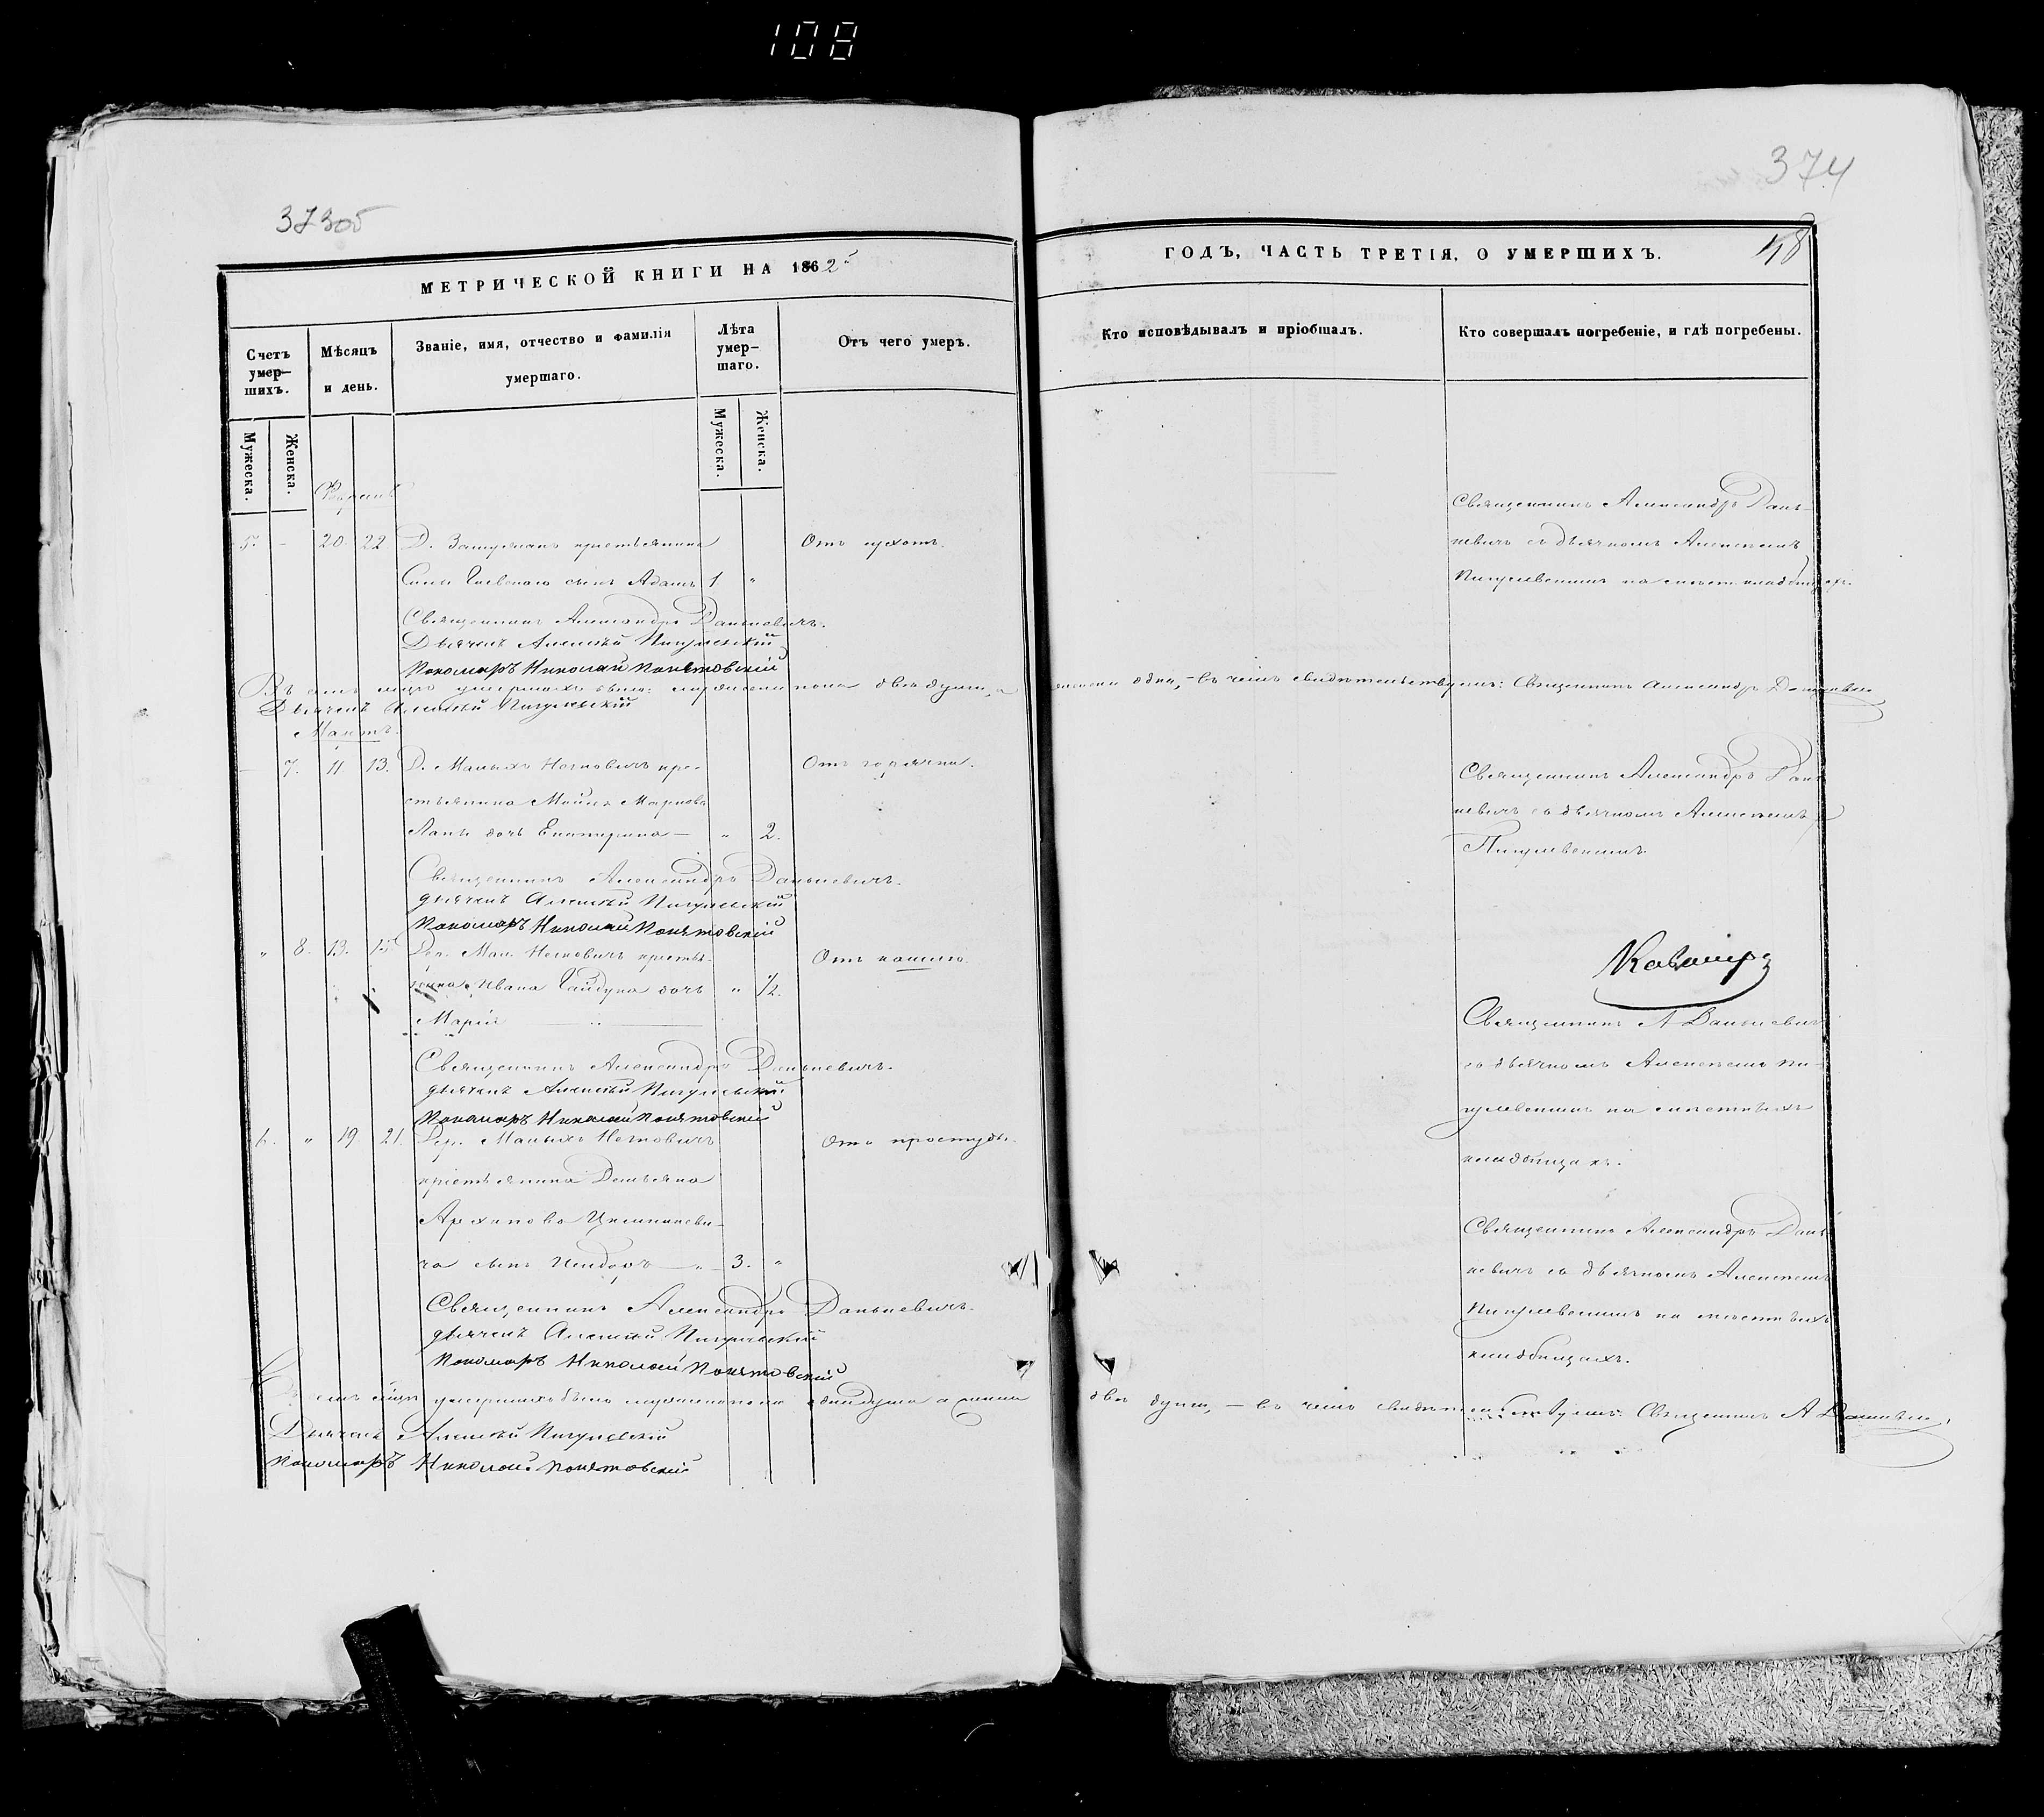 108
373об
374
МЕТРИЧЕСКОЙ КНИГИ НА 1862
ГОДЪ, ЧАСТЬ ТРЕТІЯ, О УМЕРШИХЪ.
48
Счетъ умер–шихъ.
Мѣсяцъ и день.
Званіе, имя, отчество и фамилія умершаго.
Лѣта умер–шаго.
Отъ чего умеръ.
Кто исповѣдывалъ и пріобщалъ.
Кто совершалъ погребеніе, и гдѣ погребены.
Мужеска.
Женска.
Мужеска.
Женска.
5. - 20. 22 Д. крестьянина
сынъ Адамъ 1. "
Отъ сухотъ.
Священникъ Александръ Дань–
кевичъ съ дьячкомъ Алексѣемъ
Пигулевскимъ на кладбищахъ.
Священникъ Александръ Данькевичъ.
Дьячекъ Алексѣй Пигулевскій
Пономаръ Николай Понятовскій
Въ семъ умершихъ было: мужескаго пола двѣ души, а женска одна, – въ чемъ свидѣтельствуемъ: Священникъ Александръ Данькевичъ
Дьячекъ Алексѣй Пигулевскій
Мартъ.
— 7. 11 13. Д. Малыхъ Нечковичъ кре–
стьянина Маркова
дочь Екатерина — " 2.
Отъ горячки.
Священникъ Александръ Дань
кевичъ съ дьячкомъ Алексѣемъ
Пигулевскимъ.
Священникъ Александръ Данькевичъ.
Дьячекъ Алексѣй Пигулевскій
Пономаръ Николай Понятовскій
" 8. 13. 15 Дер. Мал. Нечковичъ крестья–
нина Ивана Гайдука дочь " 1/2.
Марія
Отъ кашлю.
Священникъ А Данькевичъ
съ дьячкомъ Алексѣемъ Пи–
гулевскимъ на мѣстныхъ
кладбищахъ.
Священникъ Александръ Данькевичъ.
Дьячекъ Алексѣй Пигулевскій
Пономаръ Николай Понятовскій
6. " 19. 21. Дер. Малыхъ Нечковичъ
крестьянина Демьяна
Архипова
ча сынъ 3. "
Отъ простуды.
Священникъ Александръ Дань
кевичъ съ дьячкомъ Алексѣемъ
Пигулевскимъ на мѣстныхъ
кладбищахъ.
Священникъ Александръ Данькевичъ.
Дьячекъ Алексѣй Пигулевскій
Пономаръ Николай Понятовскій
семъ умершихъ было мужескаго одна душа а женска двѣ души, — въ чемъ свидѣтельствуемъ: Священникъ А Данькевичъ
Дьячекъ Алексѣй Пигулевскій
Пономаръ Николай Понятовскій